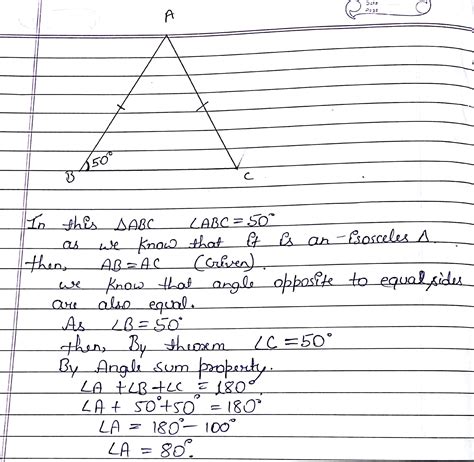 A
50°
B
C
In this △ABC ∠ABC = 50°
as we know that it is an isosceles △
then, AB = AC (Given).
we know that angle opposite to equal sides
are also equal.
As ∠B = 50°
then, By theorem ∠C = 50°
By Angle sum property.
∠A + ∠B + ∠C = 180°
∠A + 50° + 50° = 180°
∠A = 180° - 100°
∠A = 80°.